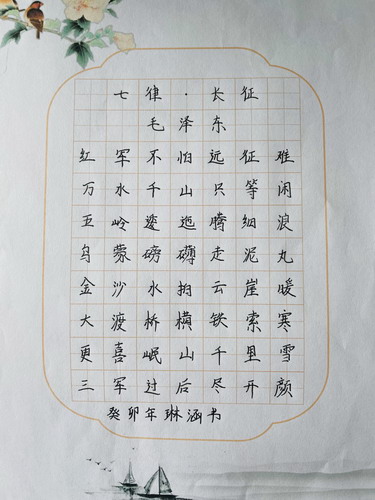 七律·长征
毛泽东
红军不怕远征难
万水千山只等闲
五岭逶迤腾细浪
乌蒙磅礴走泥丸
金沙水拍云崖暖
大渡桥横铁索寒
更喜岷山千里雪
三军过后尽开颜
癸卯年琳涵书